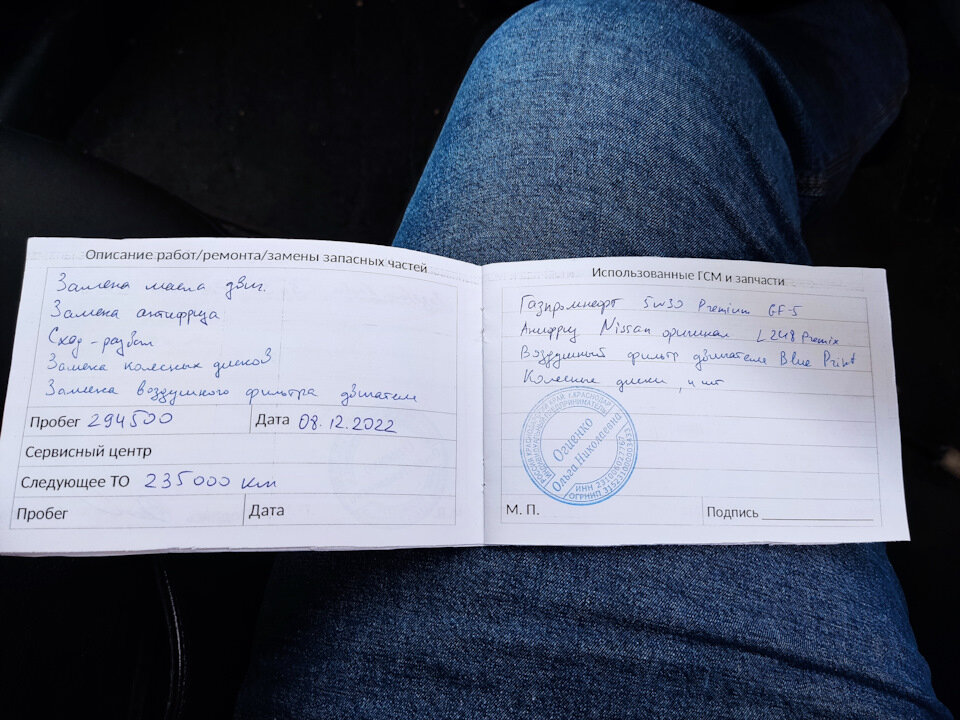 Описание работ/ремонта/замены запасных частей
Замена масла двиг.
Замена антифриза
Сход-развал
Замена колесных дисков
Замена воздушного фильтра двигателя
Пробег 294500 Дата 08.12.2022
Сервисный центр
Следующее ТО 235000 км
Пробег Дата
Использованные ГСМ и запчасти
Газпромнефт 5w30 Premium GF-5
Анифриз Nissan оригинал L248 Premix
Воздушный фильтр двигателя Blue Print
Колесные диски, 4 шт
Огиенко
Ольга Николаевна
ИНН
ОГРНИП
М. П. Подпись